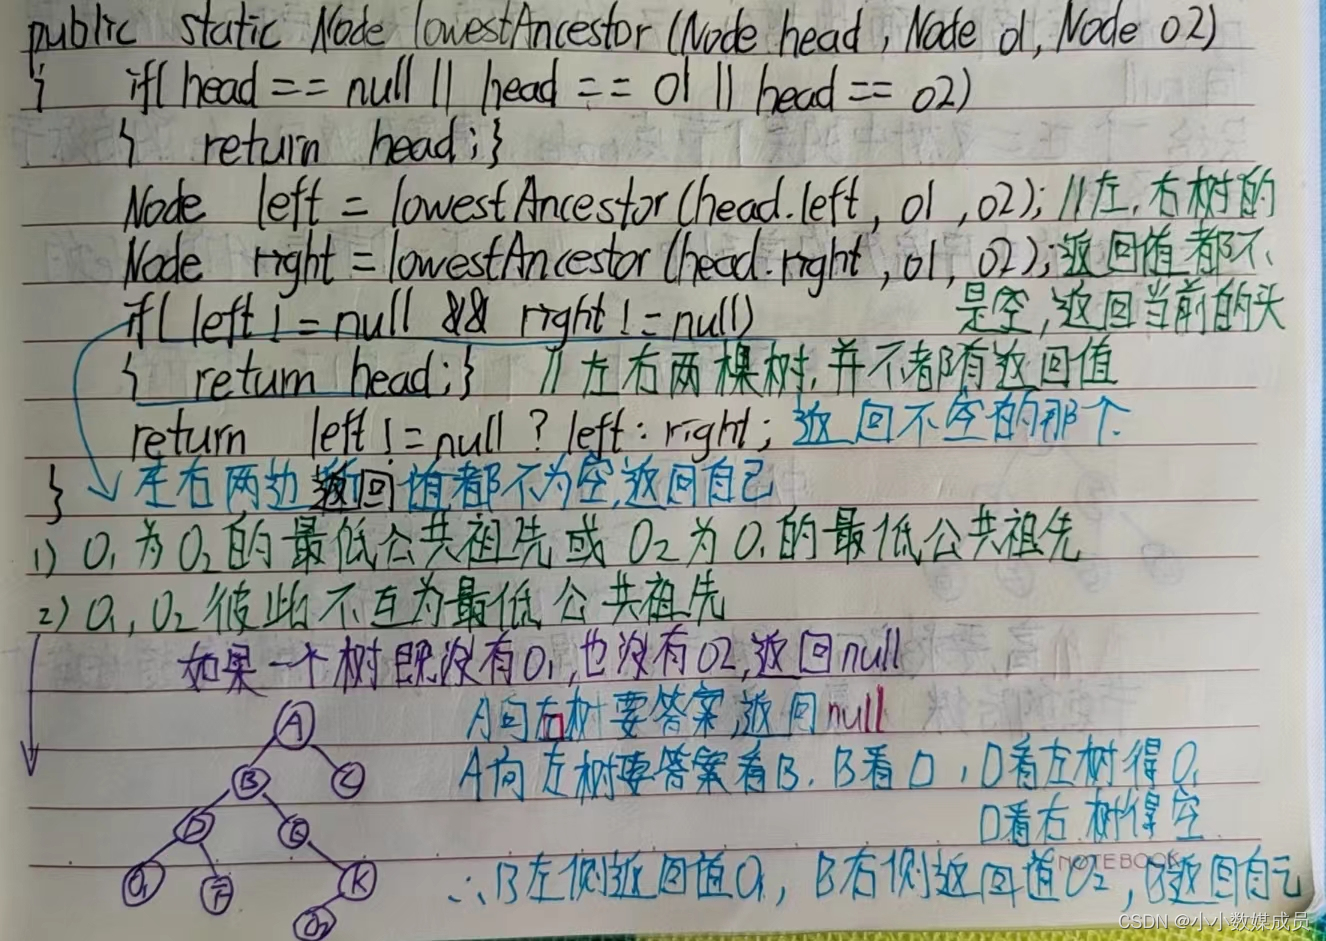 public static Node lowestAncestor (Node head, Node o1, Node o2)
{ if( head == null || head == o1 || head == o2)
{ return head;}
Node left = lowestAncestor(head.left, o1, o2); //左,右树的
Node right = lowestAncestor(head.right, o1, o2); 返回值都不
if( left != null && right != null) 是空,返回当前的头
{ return head;} //左右两棵树,并不都有返回值
return left != null ? left : right; 返回不空的那个
} 左右两边返回值都不为空,返回自己
1) O₁为O₂的最低公共祖先或O₂为O₁的最低公共祖先
2) O₁, O₂彼此不互为最低公共祖先
如果一个树既没有O₁,也没有O2,返回null
A A向右树要答案,返回null
B C A向左树要答案看B. B看D, D看左树得O₁
D E D看右树得空
O₁ F K ∴B左侧返回值O₁, B右侧返回值O₂, B返回自己
O₂
NOTEBOOK
CSDN @小小数媒成员